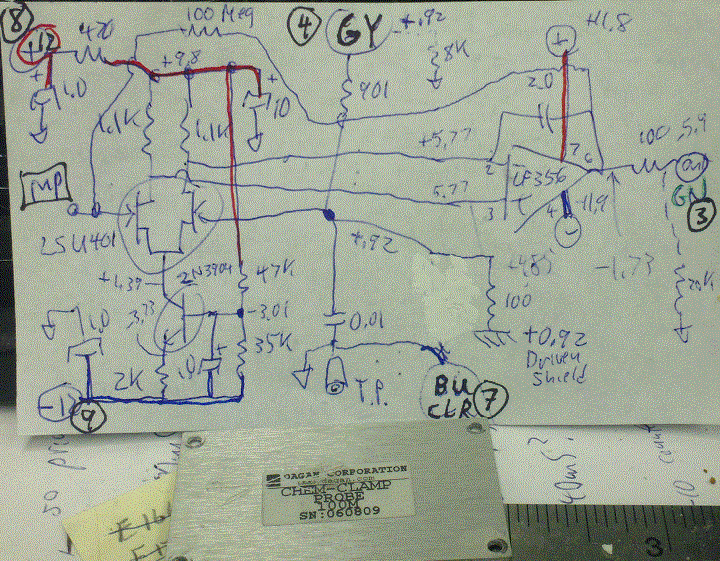 8
+12
470
100 Meg
4
GY
+.92
+11.8
+
+9.8
8K
2.0
1.0
10
901
1.1K
1.1K
+5.77
100
5.9
2
7
6
LF356
5.77
3
4
-11.9
Out
GN
3
INP
2SU401
+.92
-1.73
+1.39
2N3904
47K
-3.73
-3.01
100
20K
1.0
0.01
35K
+0.92
Driven
Shield
2K
T.P.
BU
CLR
7
-12
9
50
DAGAN CORPORATION
www.dagan.com
CHEM-CLAMP
PROBE
100M
SN:060809
40mS?
3